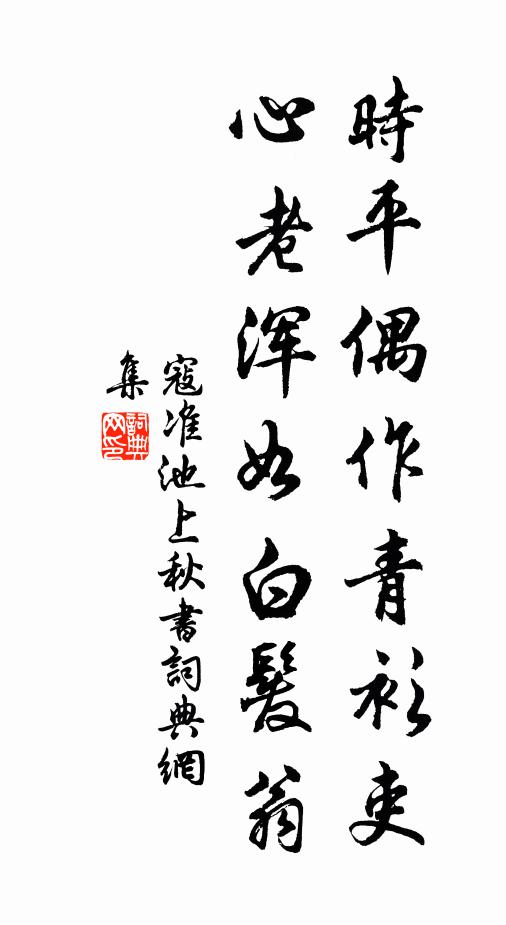 時平偶作青衫吏
心老渾如白髮翁
寇准池上秋書詞典網
集
詞典网印